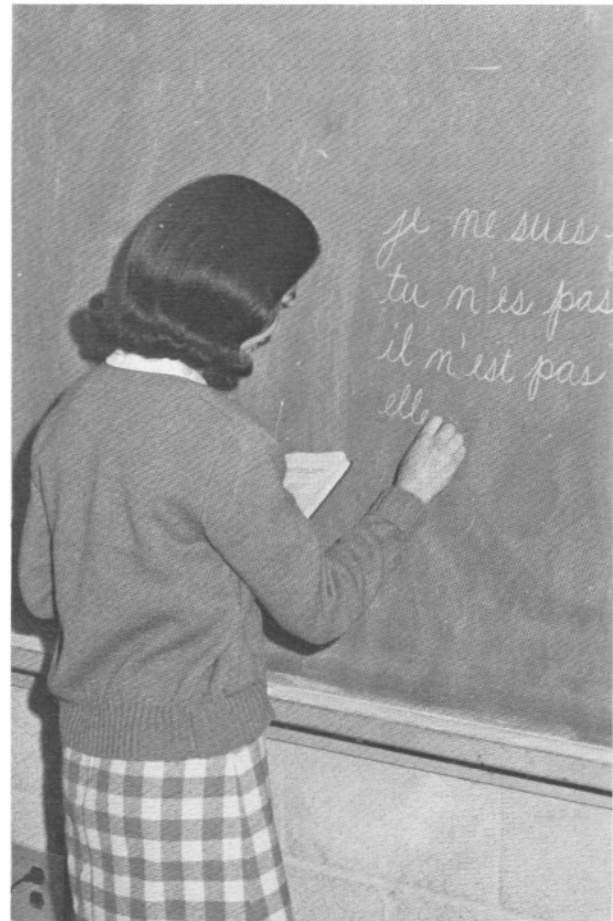 je ne suis
tu n'es pas
il n'est pas
elle